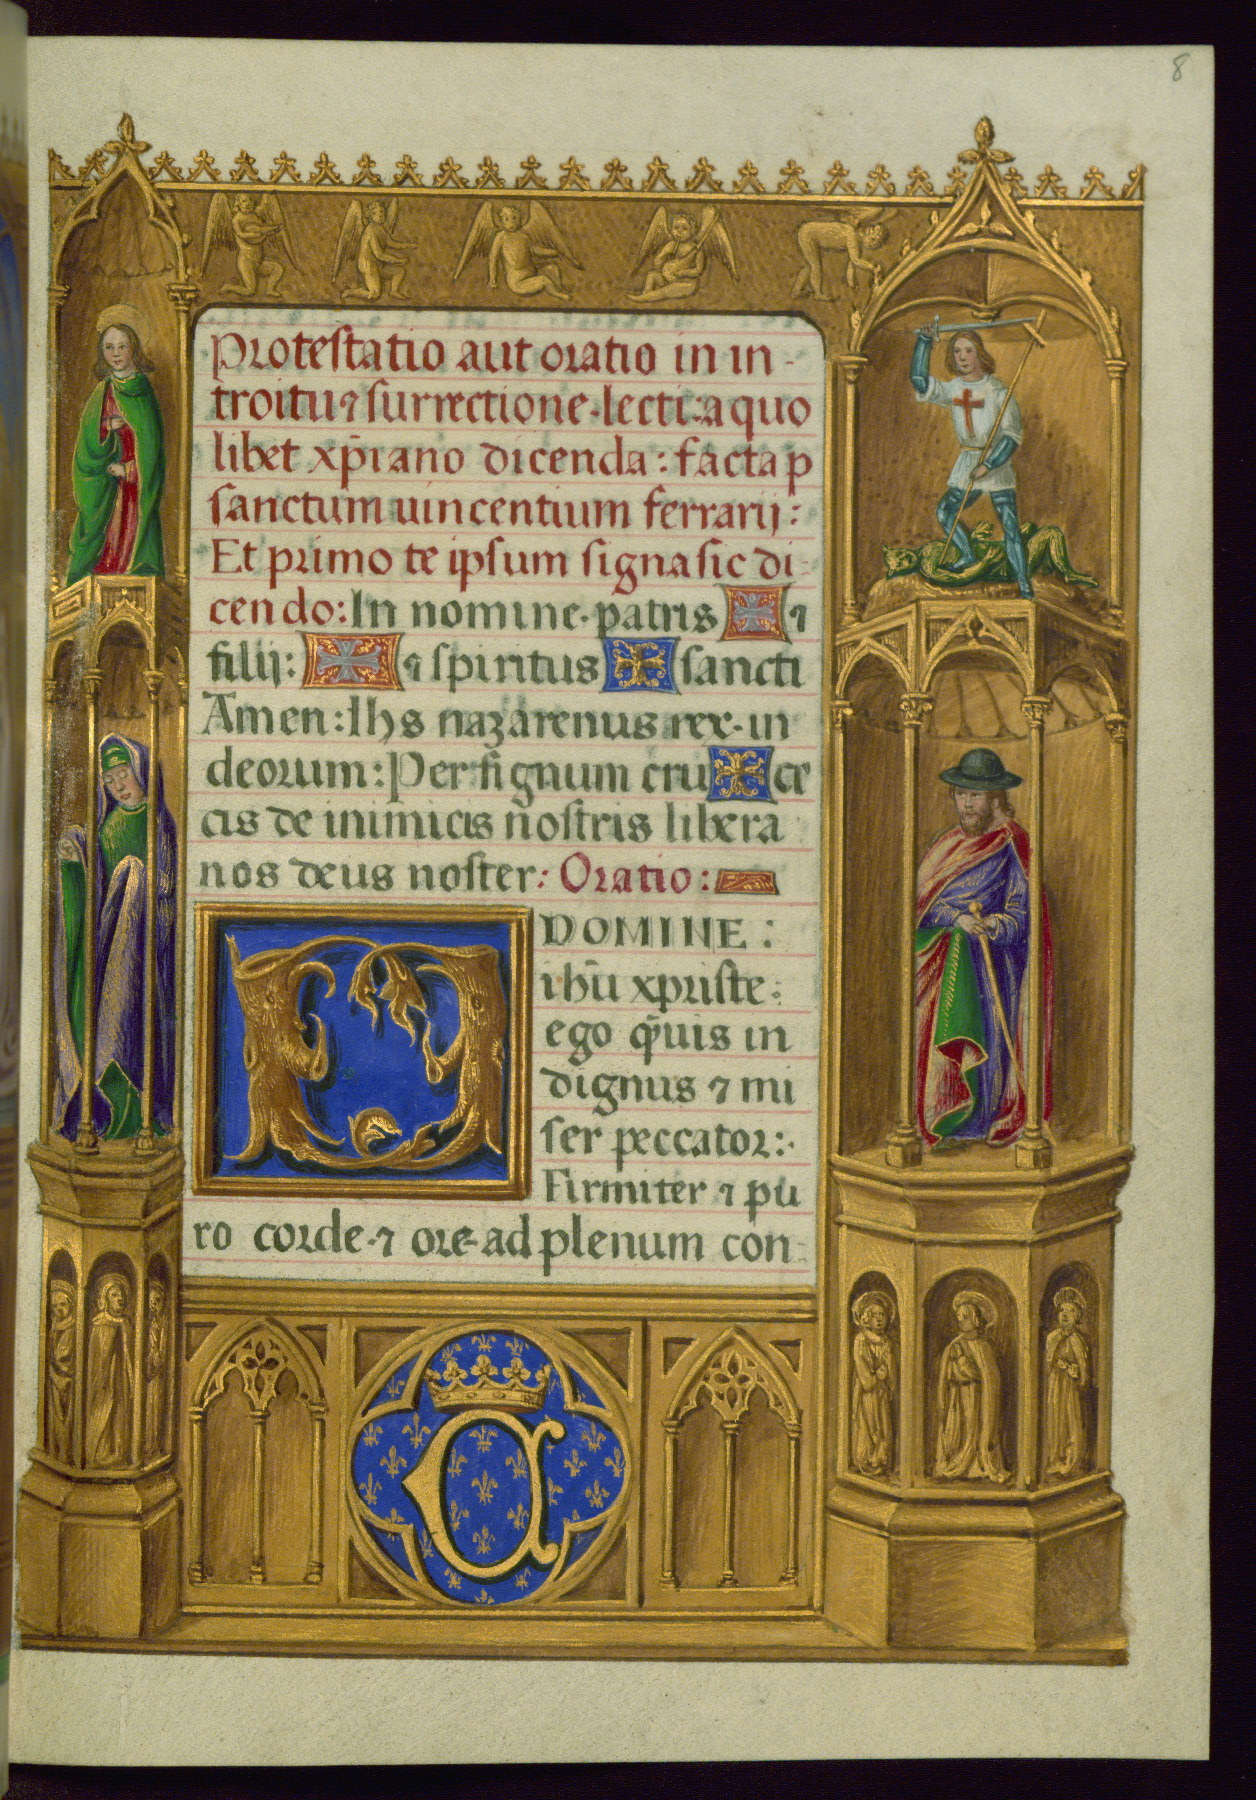 8
Protestatio aut oratio in in-
troitu ⁊ surrectione·lecti: a quo
libet xp̄iano dicenda: facta p
sanctum uincentium ferrarij:
Et primo te ipsum signa sic di:
cendo: In nomine·patris ⁊
filij: ⁊ spiritus sancti
Amen: Ihs nazarenus rex·iu
deorum: Per signum cru ce
cis de inimicis nostris libera
nos deus noster: Oratio:
DOMINE:
ihū xpriste:
ego q̄uis in
dignus ⁊ mi
ser peccator:·
Firmiter ⁊ pu
ro corde·⁊ ore·ad plenum con: